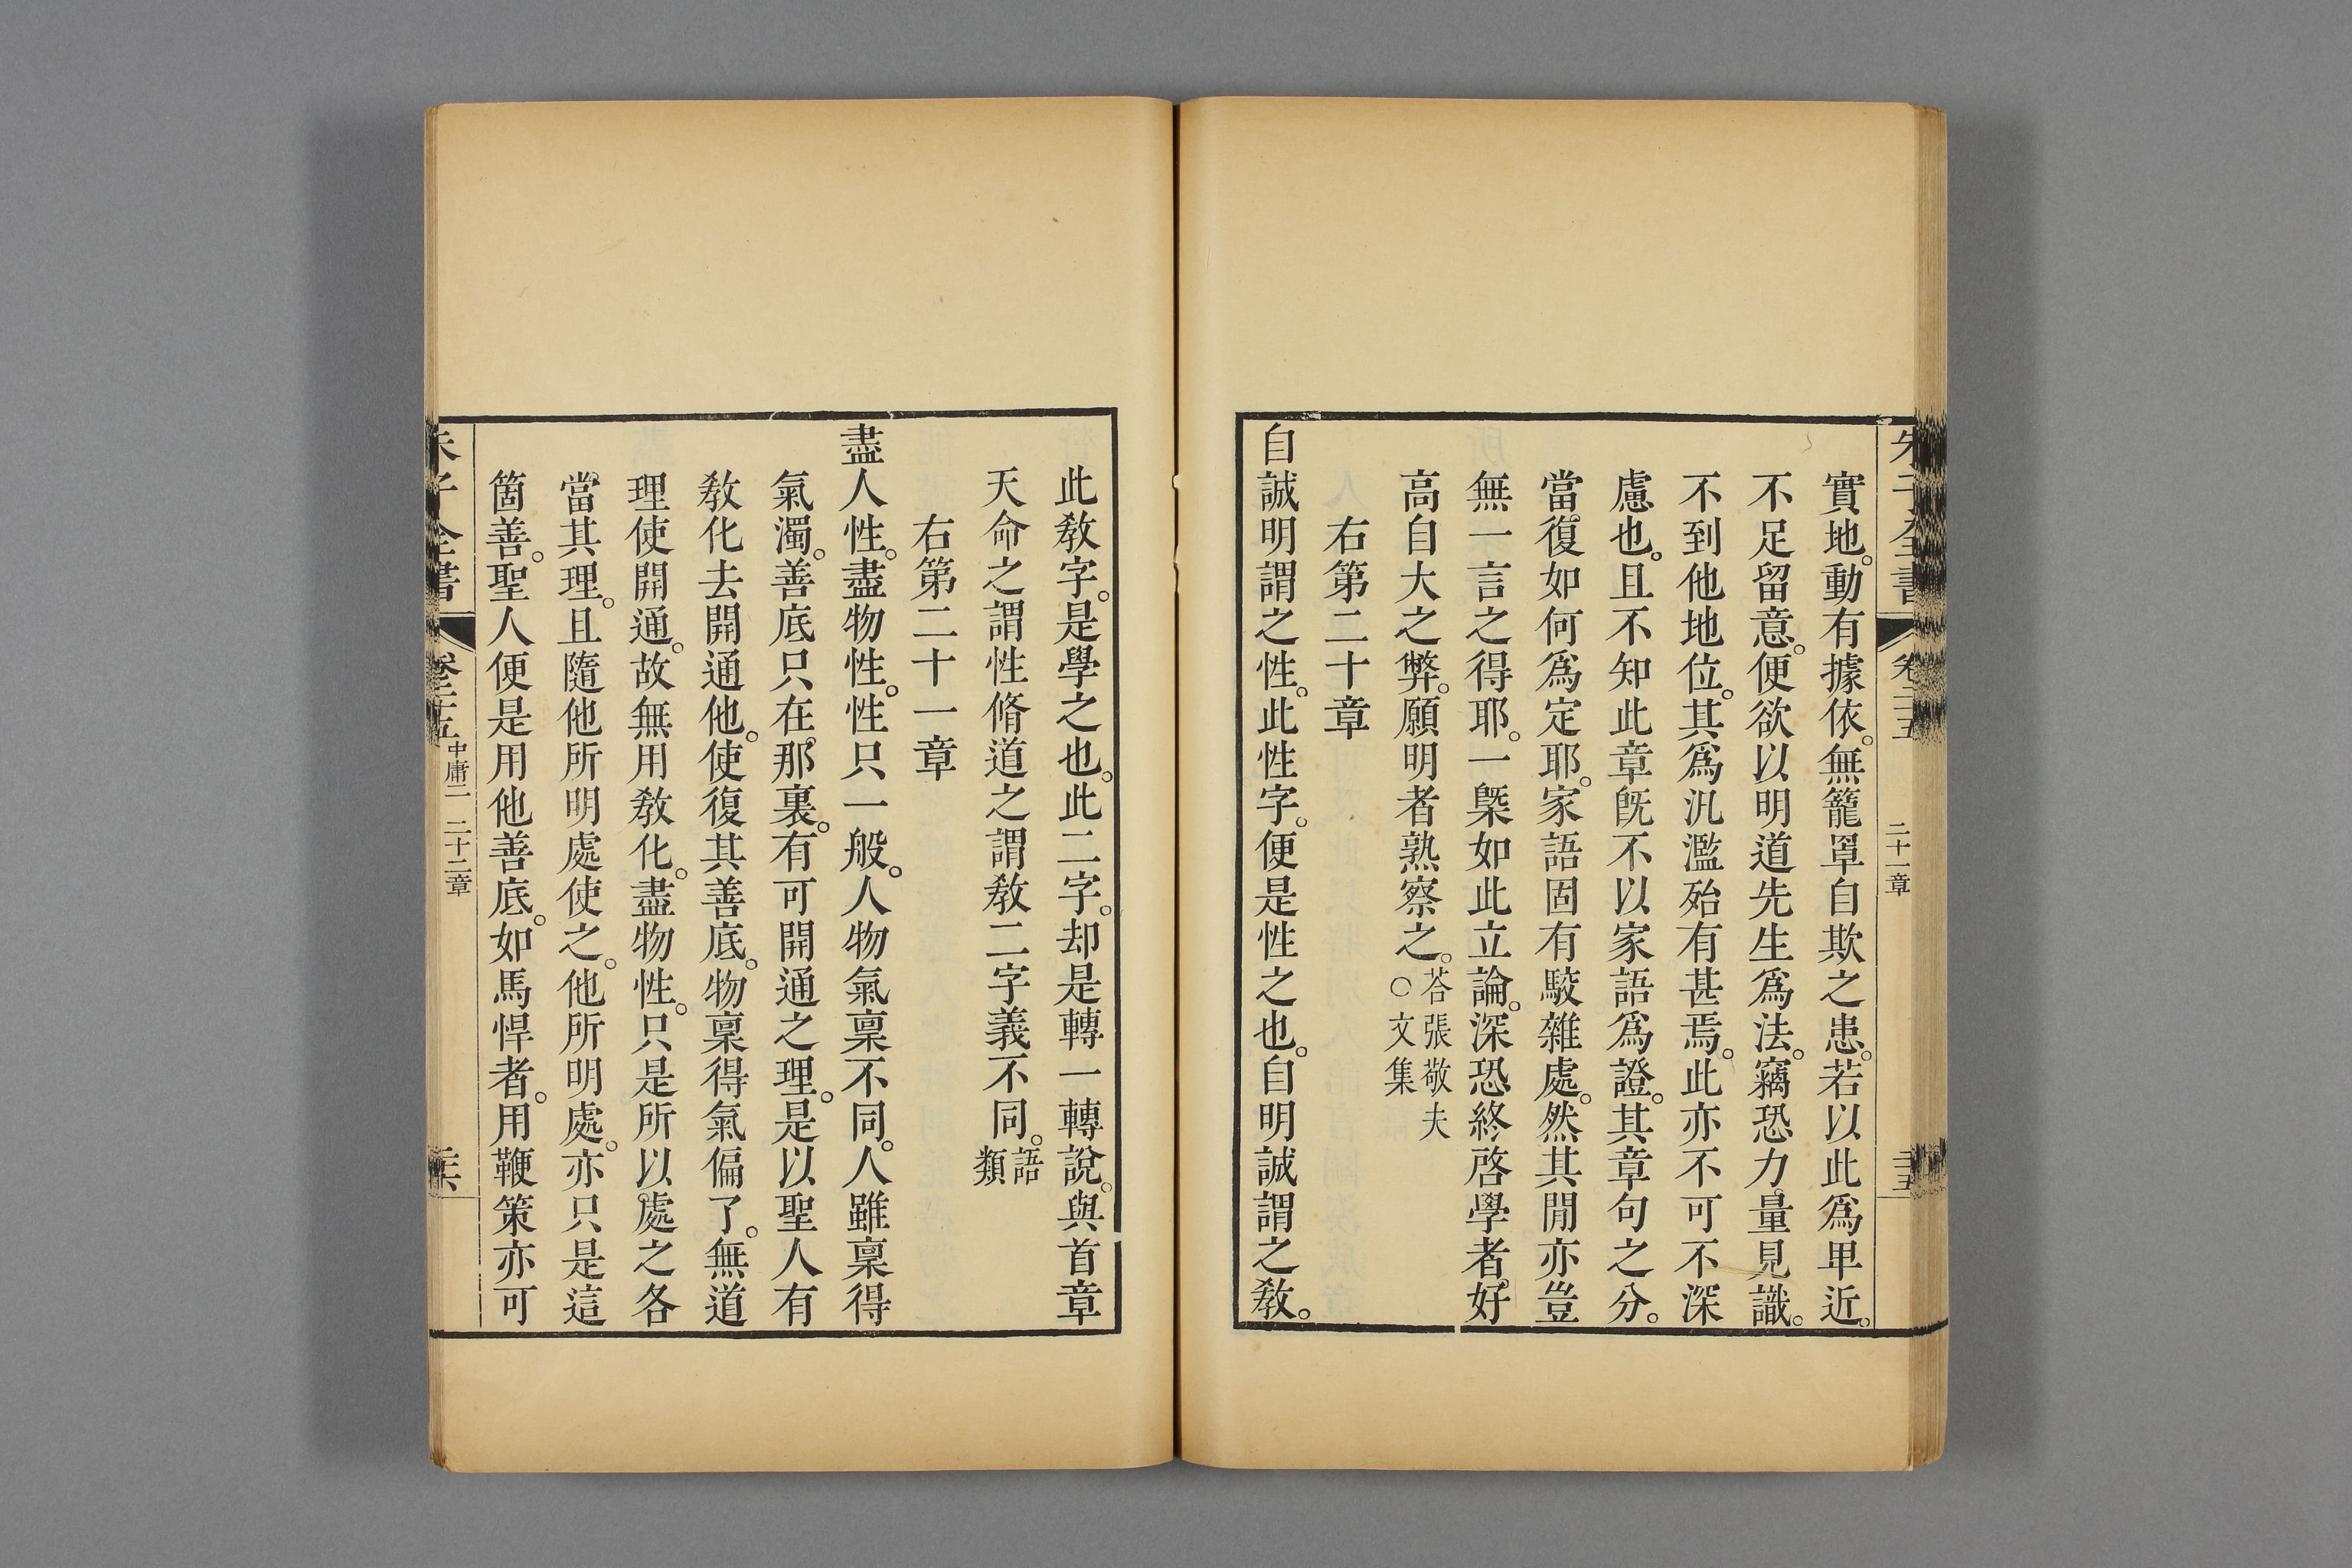 朱子全書 卷二十五 二十一章 二十五
實地。動有據依。無籠罩自欺之患。若以此爲卑近。
不足留意。便欲以明道先生爲法。竊恐力量見識。
不到他地位。其爲汎濫殆有甚焉。此亦不可不深
慮也。且不知此章旣不以家語爲證。其章句之分。
當復如何爲定耶。家語固有駮雜處。然其閒亦豈
無一言之得耶。一槩如此立論。深恐終啓學者好
高自大之弊。願明者熟察之。答張敬夫○文集
右第二十章
自誠明謂之性。此性字。便是性之也。自明誠謂之敎。
此敎字。是學之也。此二字。却是轉一轉說。與首章
天命之謂性脩道之謂敎二字義不同。語類
右第二十一章
盡人性。盡物性。性只一般。人物氣稟不同。人雖稟得
氣濁。善底只在那裏。有可開通之理。是以聖人有
敎化去開通他。使復其善底。物稟得氣偏了。無道
理使開通。故無用敎化。盡物性。只是所以處之各
當其理。且隨他所明處使之。他所明處。亦只是這
箇善。聖人便是用他善底。如馬悍者。用鞭策亦可
朱子全書 卷二十五 中庸二 二十二章 二十六